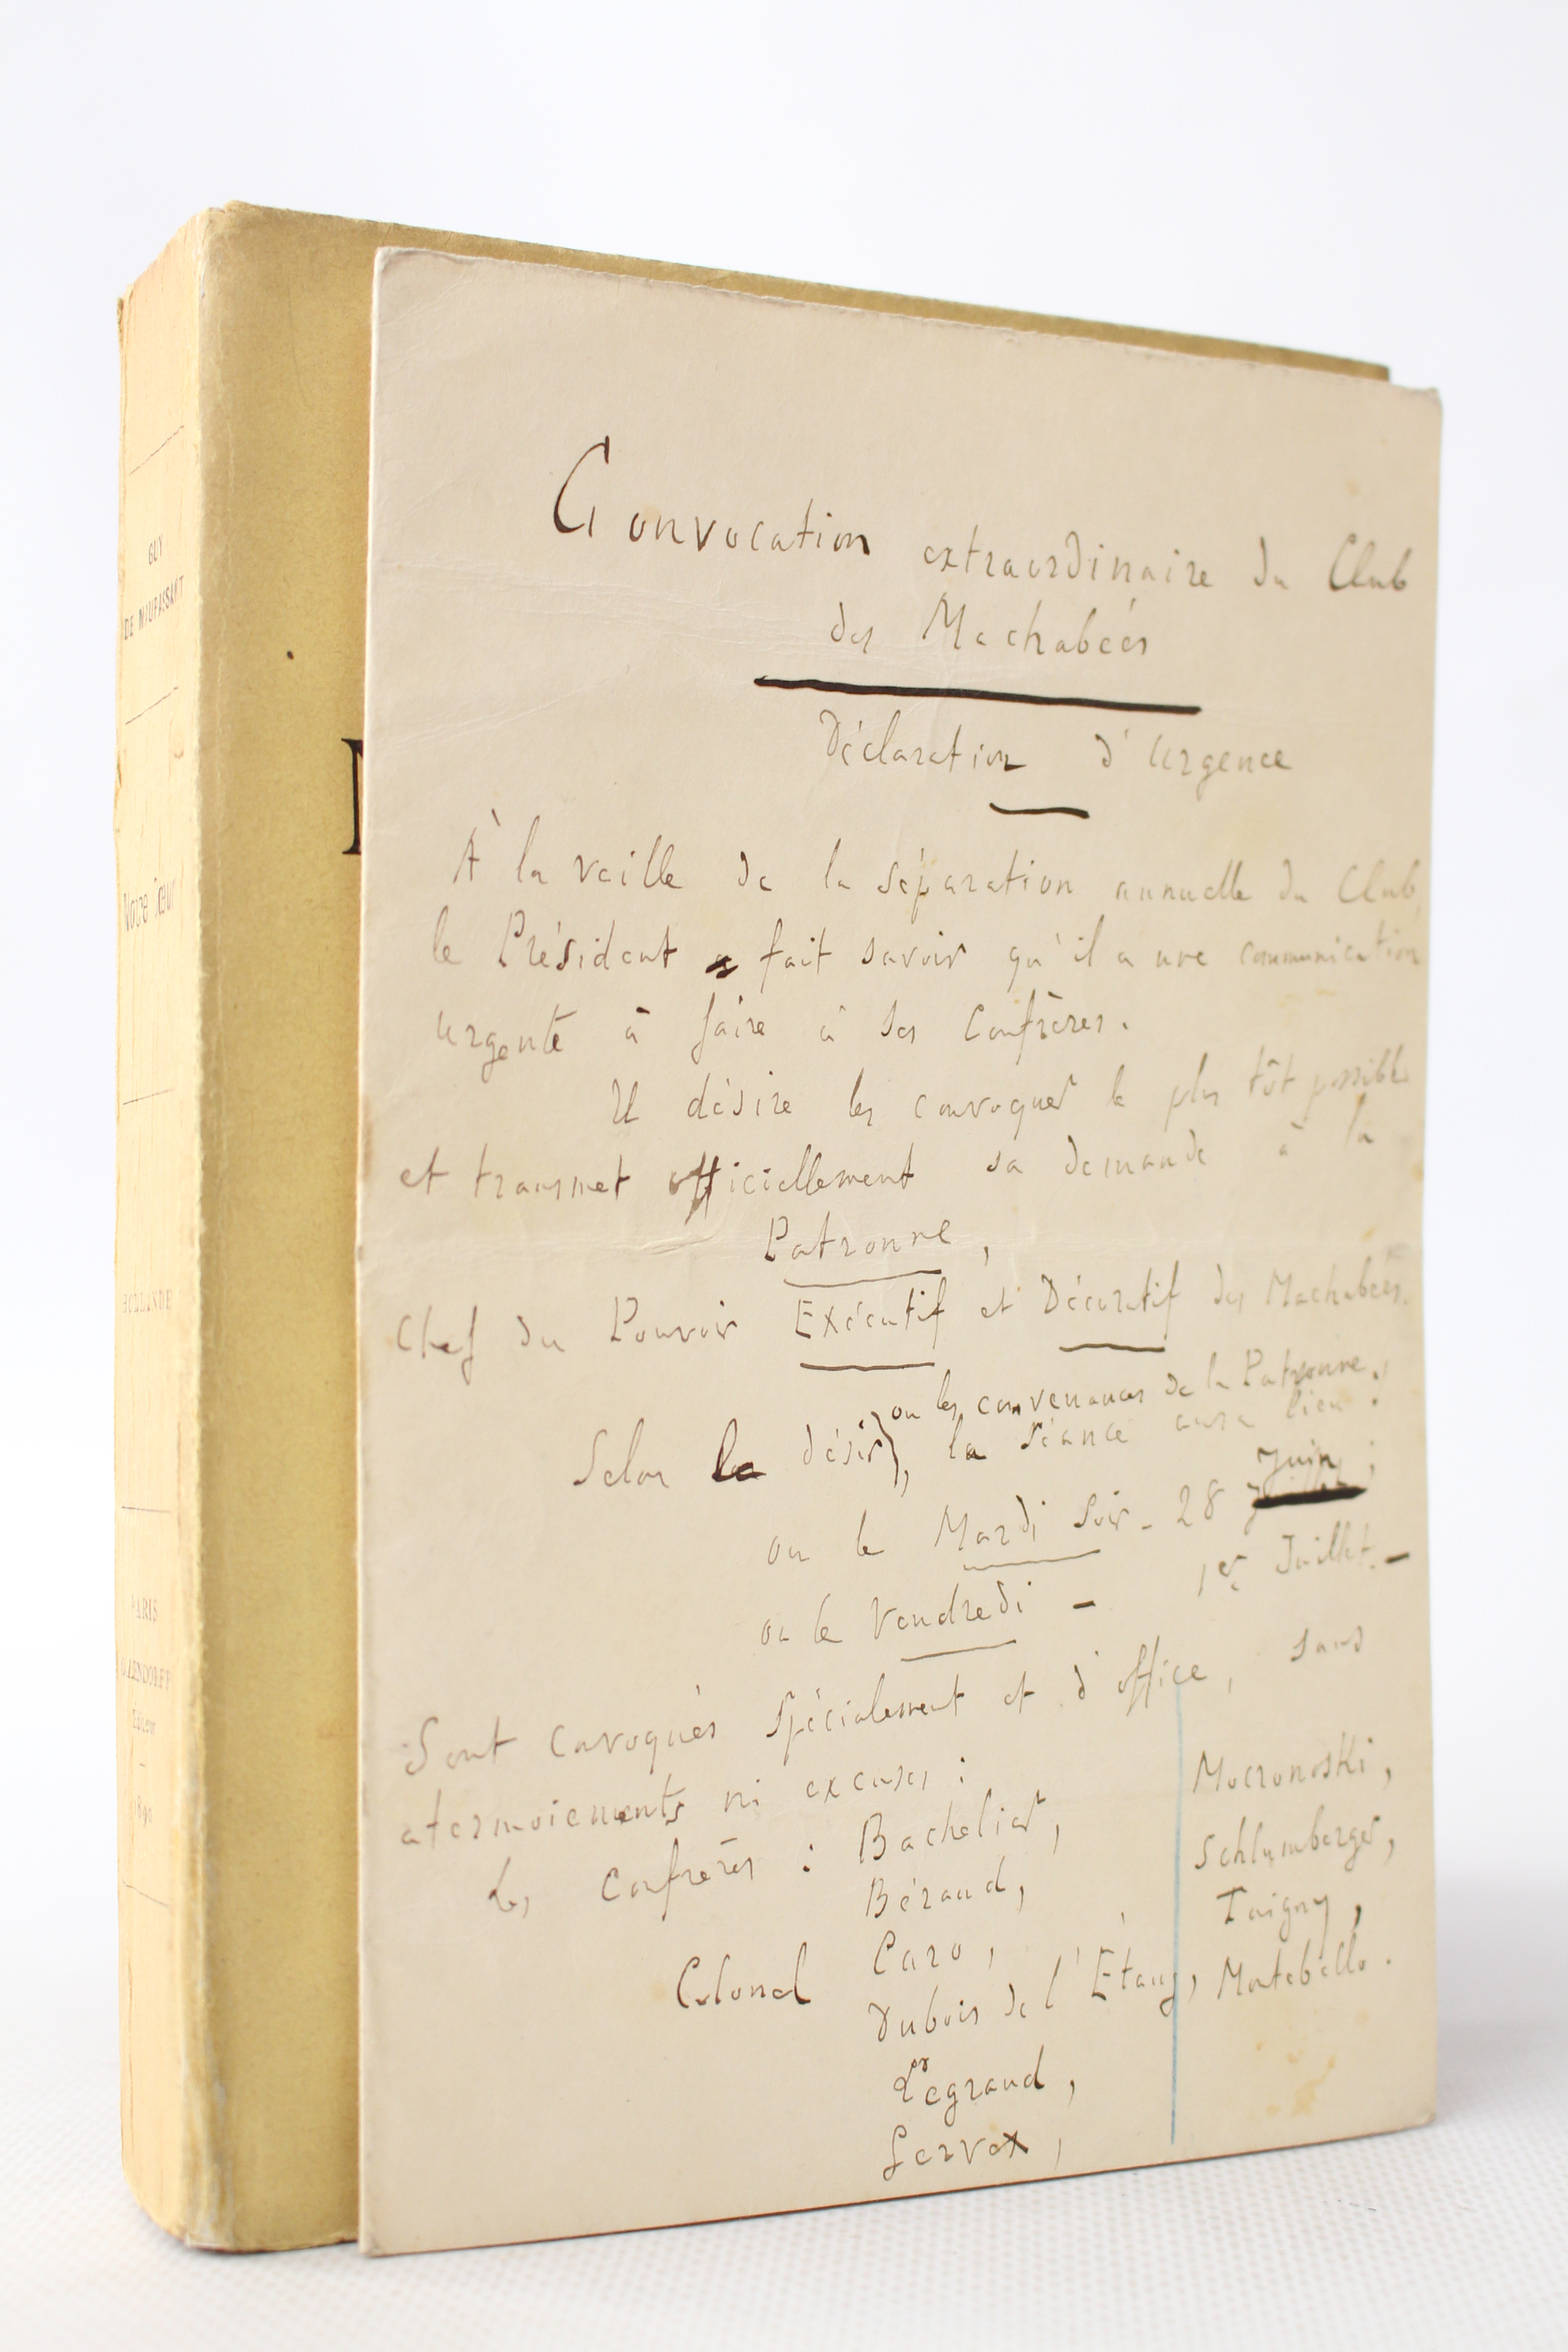 GUY
DE MAUPASSANT
Notre Cœur
HOLLANDE
PARIS
OLLENDORFF
Éditeur
1890
Convocation extraordinaire du Club
des Machabées
Déclaration d'urgence
À la veille de la séparation annuelle du Club,
le Président fait savoir qu'il a une communication
urgente à faire à ses confrères.
Il désire les convoquer le plus tôt possible
et transmet officiellement sa demande à la
Patronne,
Chef du Pouvoir Exécutif et Décoratif des Machabées.
ou les convenances de la Patronne,
Selon le désir, la séance aura lieu :
Juin
ou le Mardi soir - 28 ;
ou le Vendredi - 1er Juillet. -
Sont convoqués spécialement et d'office, sans
atermoiements ni excuses :
Les confrères : Bachelier,
Béraud,
Caro,
Colonel Dubois de l'Étang,
Dr Legrand,
Gervex,
Mocronoski,
Schlumberger,
Taigny,
Montebello.